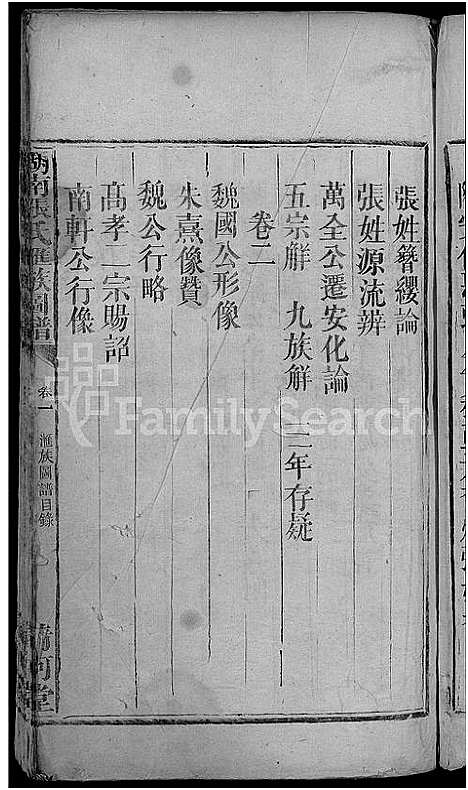 張姓簪纓論
張姓源流辨
萬全公遷安化論
五宗解　九族解　三年存疑
卷二
魏國公形像
朱熹像贊
魏公行略
高孝二宗賜詔
南軒公行像
湖南張氏滙族圖譜
卷一　滙族圖譜目錄
清河堂
FamilySearch